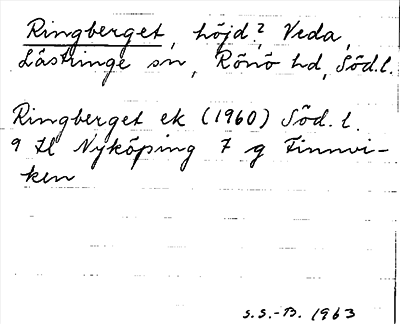 Ringberget, höjd? Veda,
Lästringe sn, Rönö hd, Söd.l.
Ringberget ek (1960) Söd. l.
9 H Nyköping 7 g Finnvi-
ken
S.S.-B. 1963